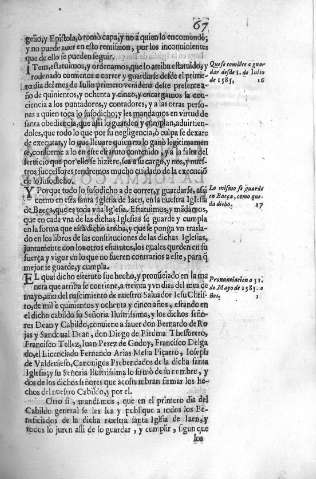 67
gelio, y Epistola, ò tomò capa, y no à quien lo encomendò,
y no puede auer en esto remission, por los inconuinientes
que de ello se pueden seguir.
Item, estatuimos, y ordenamos, que lo arriba estatuido, y
ordenado comience à correr y guardarse desde el prime-
ro dia del mes de Iulio primero venidero deste presente a-
ño de quinientos, y ochenta y cinco, y encargamos la con-
ciencia a los puntadores, y contadores, y a las otras perso-
nas a quien toca lo susodicho; y les mandamos en virtud de
santa obediencia, que assi lo guarden y cumplan, aduirtien-
doles, que todo lo que por su negligencia, ò culpa se dexare
de executar, y lo que lleuare quien no lo ganò legitimamen
te, conforme a lo en este estatuto contenido, y a la falta del
seruicio que por ello se hiziere, sea a su cargo, y nos, y nues-
tros successores tendremos mucho cuidado de la execuciõ
de lo susodicho.
Y Porque todo lo susodicho a de correr, y guardarse, assi
como en esta santa Iglesia de Iaen, en la nuestra Iglesia
de Baeça, que es toda vna Iglesia. Estatuimos, y mãdamos,
que en cada vna de las dichas Iglesias se guarde y cumpla
en la forma que està dicho arriba, y que se ponga vn trasla-
do en los libros de las constituciones de las dichas Iglesias,
juntamente con los otros estatutos, los quales queden en su
fuerça y vigor en lo que no fueren contrarios a este, para q̃
mejor se guarde, y cumpla.
EL qual dicho estatuto fue hecho, y pronunciado en la ma
nera que arriba se contiene, a treinta y vn dias del mes de
mayo, año del nacimiento de nuestro Saluador Iesu Chris-
to, de mil e quinientos y ochenta y cinco años, estando en
el dicho cabildo su Señoria Ilustrissima, y los dichos seño-
res Dean y Cabildo, conuiene a sauer don Bernardo de Ro
jas y Sandoual Dean, don Diego de Piedrola Thesorero,
Francisco Tellez, Iuan Perez de Godoy, Francisco Delga
do, el Licenciado Fernando Arias Mesia Piçarro, Ioseph
de Valdeuiesso, Canonigos Prebendados de la dicha santa
Iglesia, y su Señoria Ilustrissima lo firmò de su nombre, y
dos de los dichos señores que acostumbran firmar los he-
chos del nuestro Cabildo, y por el.
Otro si, mandamos, que en el primero dia del
Cabildo general se lea y publique a todos los Be-
neficiados de la dicha nuestra santa Iglesia de Iaen, y
todos lo juren alli de lo guardar, y cumplir, segun que
los
Que se comience a guar
dar desde 1. de Iulio
de 1585.
16
Lo mismo se guarde
en Baeça, como que-
da dicho.
17
Pronunciaron a 31.
de Mayo de 1585. a
ños.